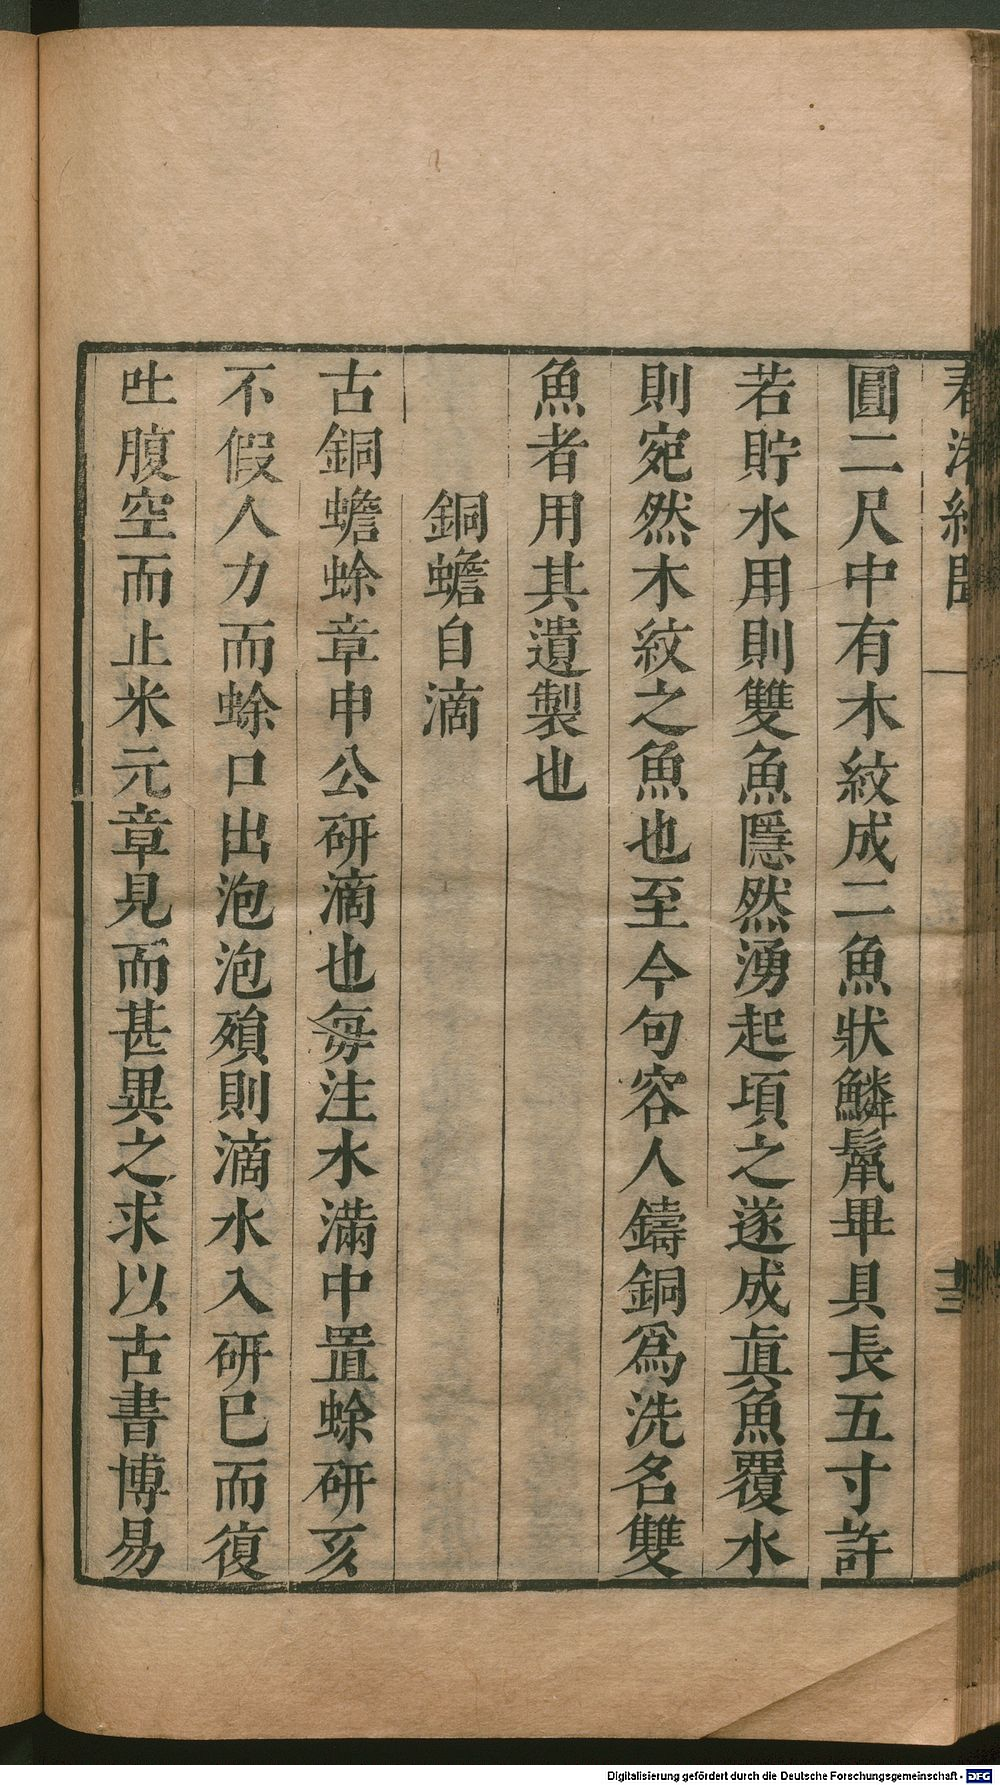 春渚紀聞
十三
圓二尺中有木紋成二魚狀鱗鬛畢具長五寸許
若貯水用則雙魚隱然湧起頃之遂成眞魚覆水
則宛然木紋之魚也至今句容人鑄銅爲洗名雙
魚者用其遺製也
銅蟾自滴
古銅蟾蜍章申公研滴也每注水滿中置蜍研亥
不假人力而蜍口出泡泡殞則滴水入研已而復
吐腹空而止米元章見而甚異之求以古書博易
Digitalisierung gefördert durch die Deutsche Forschungsgemeinschaft - DFG